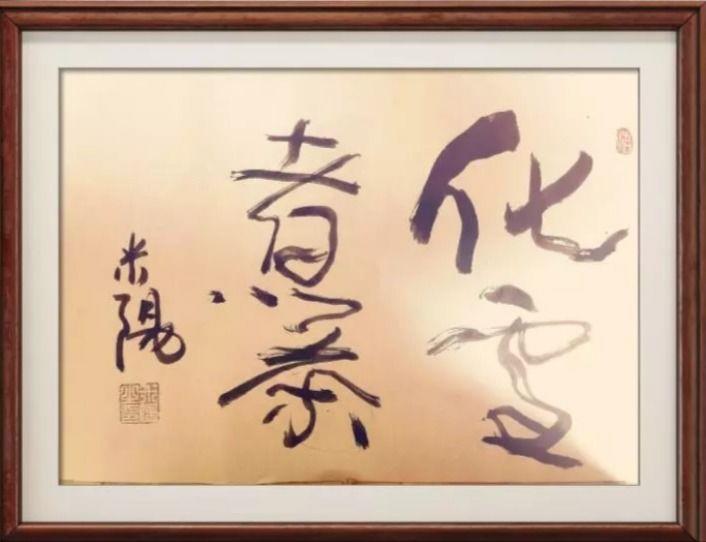 化雪
煮茶
米陽